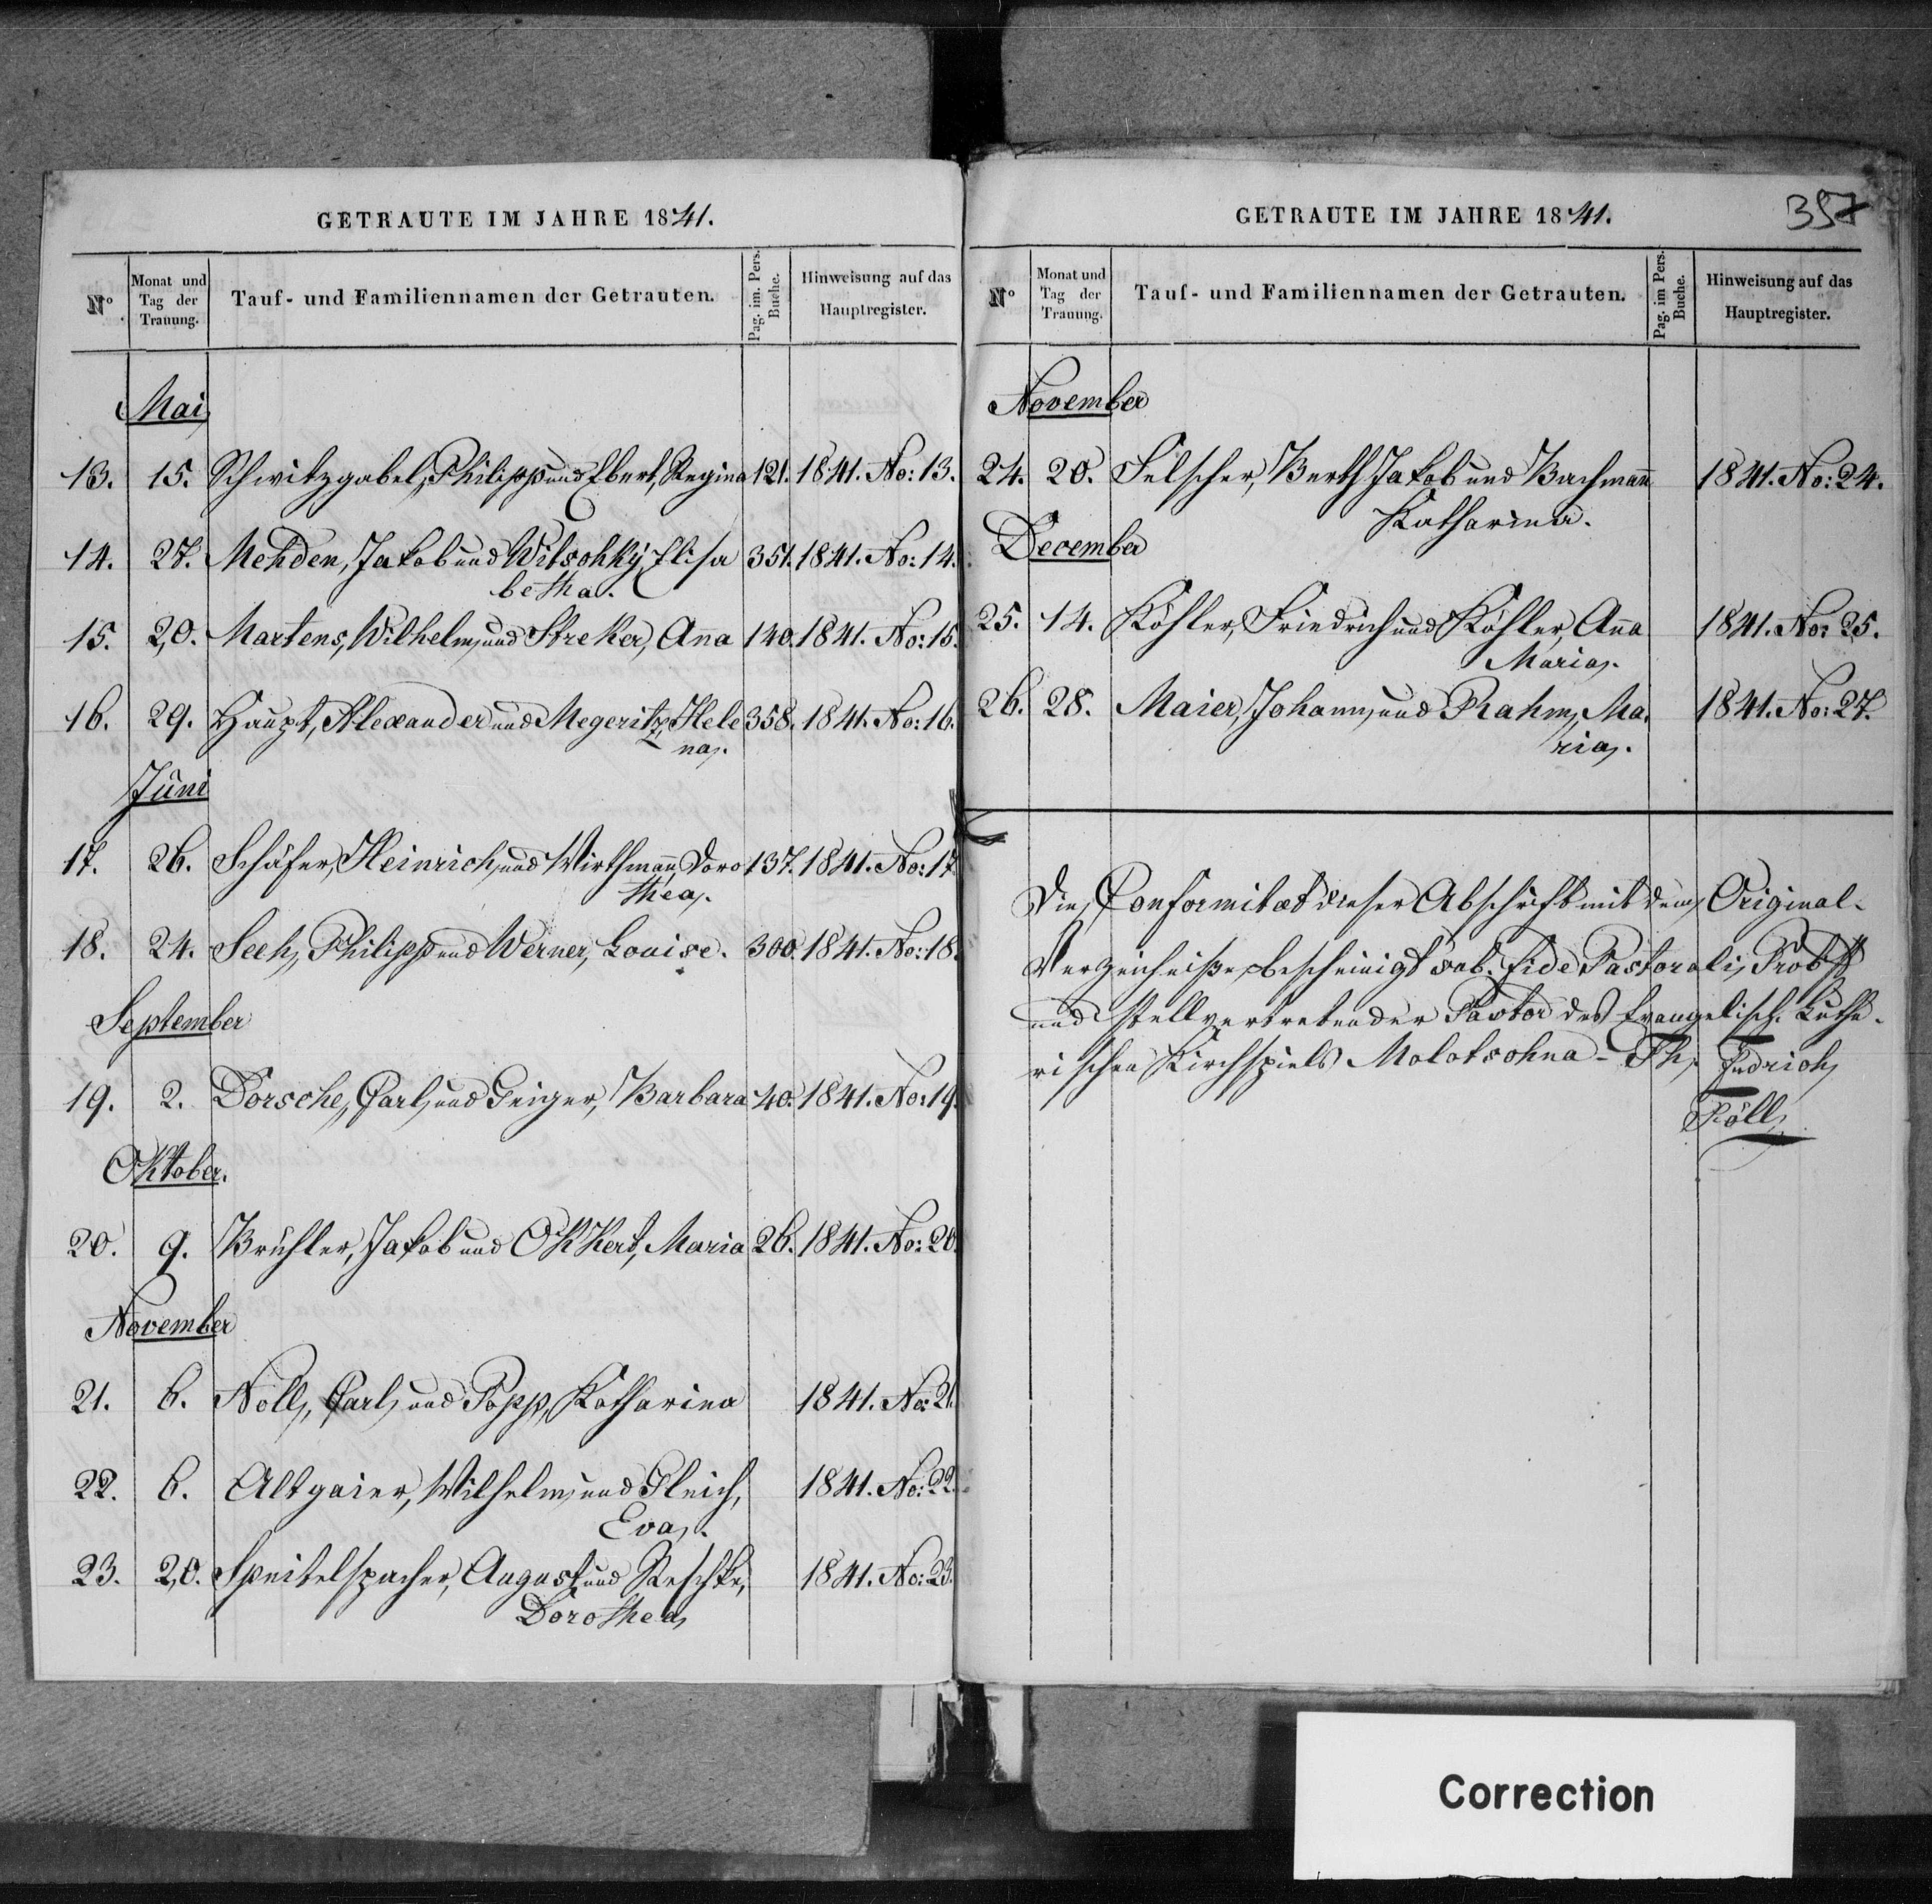 GETRAUTE IM JAHRE 1841.
Nº
Monat und Tag der Trauung.
Tauf- und Familiennamen der Getrauten.
Pag. im. Pers. Buche.
Hinweisung auf das Hauptregister.
Mai
13. 15. Schwitzgabel, Philipp und Ebert, Regina 121. 1841. No: 13.
14. 27. Mehden, Jakob und Witsohky, Elisa 351. 1841. No: 14.
betha.
15. 20. Martens, Wilhelm und Streker, Anna 140. 1841. No: 15.
16. 29. Haupt, Alexander und Megeritz, Hele 358. 1841. No: 16.
na.
Juni
17. 26. Schäfer, Heinrich und Wirthmann, Doro 137. 1841. No: 17.
thea.
18. 24. Seeh, Philipp und Werner, Louise. 300. 1841. No: 18.
September
19. 2. Dorsche, Carl und Geiger, Barbara 40. 1841. No: 19.
Oktober.
20. 9. Brühler, Jakob und Okkert, Maria 26. 1841. No: 20.
November
21. 6. Noll, Carl und Popp, Katharina 1841. No: 21.
22. 6. Altgaier, Wilhelm und Gleich, 1841. No: 22.
Eva.
23. 20. Speitelspacher, August und Reschke, 1841. No: 23.
Dorothea
GETRAUTE IM JAHRE 1841.
357
Nº
Monat und Tag der Trauung.
Tauf- und Familiennamen der Getrauten.
Pag. im Pers. Buche.
Hinweisung auf das Hauptregister.
November
24. 20. Felscher, Berth Jakob und Bachmann 1841. No: 24.
Katharina.
December
25. 14. Köhler, Friedrich und Köhler, Anna 1841. No: 25.
Maria.
26. 28. Maier, Johann und Prahm, Ma. 1841. No: 27.
ria.
Die Conformitæt dieser Abschrift mit dem Original-
Verzeichniße bescheinigt sub. fide Pastorali, Probst
und stellvertretender Pastor des Evangelisch. Luthe-
rischen Kirchspiels Molotschna -
Föll
Correction